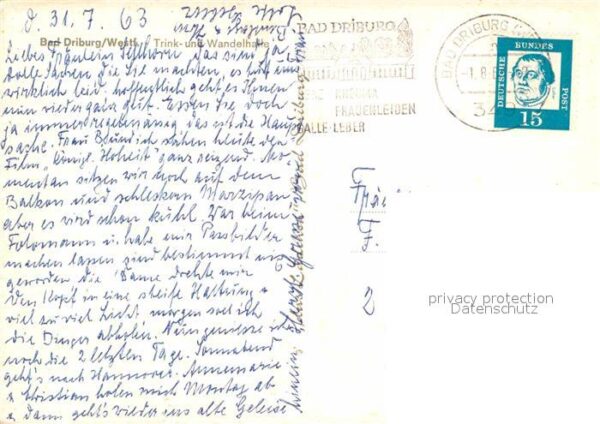 d. 31.7.63
Bad Driburg/Westf. Trink- und Wandelhalle
Liebes Fräulein das sind ja
tolle Sachen die Sie machten, es tut uns
wirklich leid hoffentlich geht es Ihnen
nun wieder ganz gut. Essen Sie doch
ja immer das ist die Haupt
sache. Frau B u. ich sahen heute den
Film "Königl. Hoheit" ganz reizend. Mo-
mentan sitzen wir noch auf dem
Balkon und schleckern Marzipan,
aber es wird schon kühl. War beim
Fotomann u. habe mir Passbilder
machen lassen sind bestimmt nix
geworden die Dame drehte mir
den Kopf in eine steife Haltung u
viel zu viel Licht morgen soll ich
die Dinger abholen. Nun geniesse ich
noch die 2 letzten Tage. Sonnabend
geht's nach Hannover. Annemarie
u Christian holen mich Montag ab
u dann geht's wieder ins alte Geleise
BAD DRIBURG
HERZ RHEUMA
FRAUENLEIDEN
GALLE-LEBER
BAD DRIBURG
DEUTSCHE BUNDES POST
15
Fräu
F.
2
privacy protection
Datenschutz